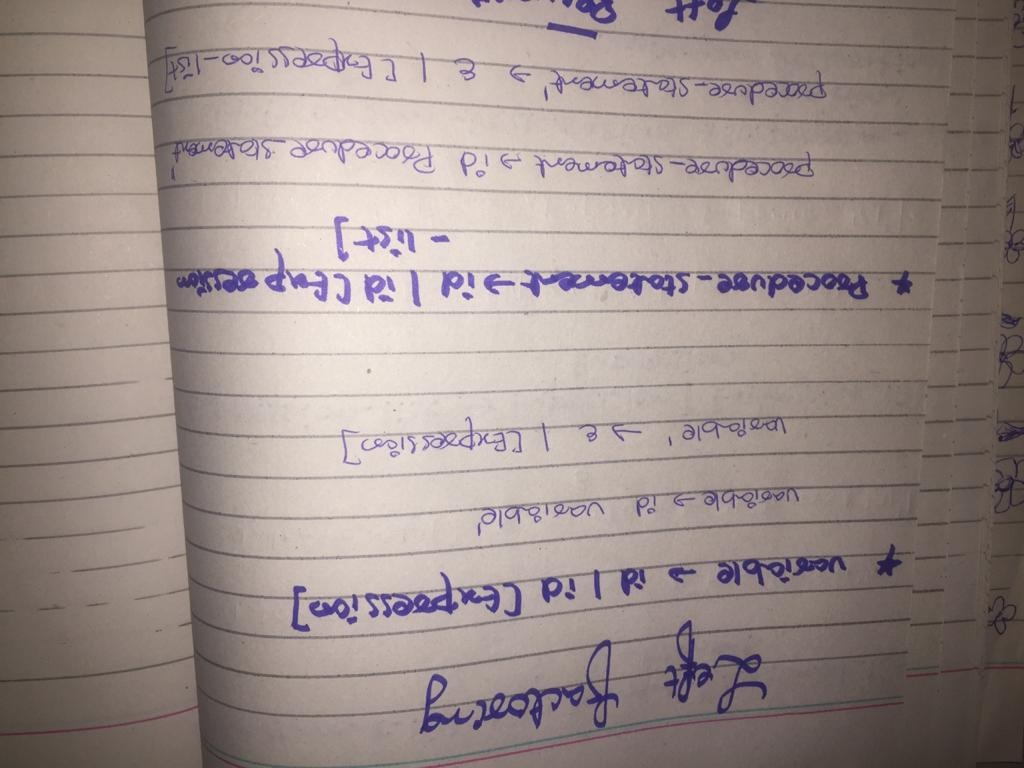 Left factoring
* variable → id | id [Expression]
variable → id variable'
variable' → ε | [Expression]
* Procedure-statement → id | id [Expression
- list]
procedure-statement → id Procedure-statement'
procedure-statement' → ε | [Expression-list]
Left